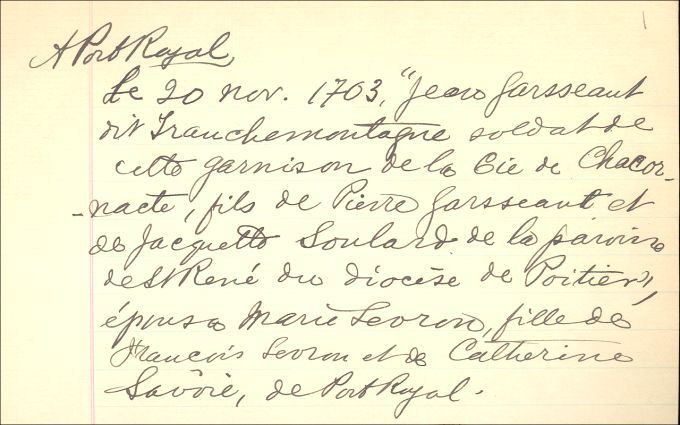 1
A Port Royal
Le 20 nov. 1703, "Jean Garsseaut
dit Tranchemontagne soldat de
cette garnison de la Cie de Chacor-
-nacte, fils de Pierre Garsseaut et
de Jacquette Soulard de la paroisse
de St René du diocèse de Poitiers",
épousa Marie Levron, fille de
François Levron et de Catherine
Savoie, de Port Royal.